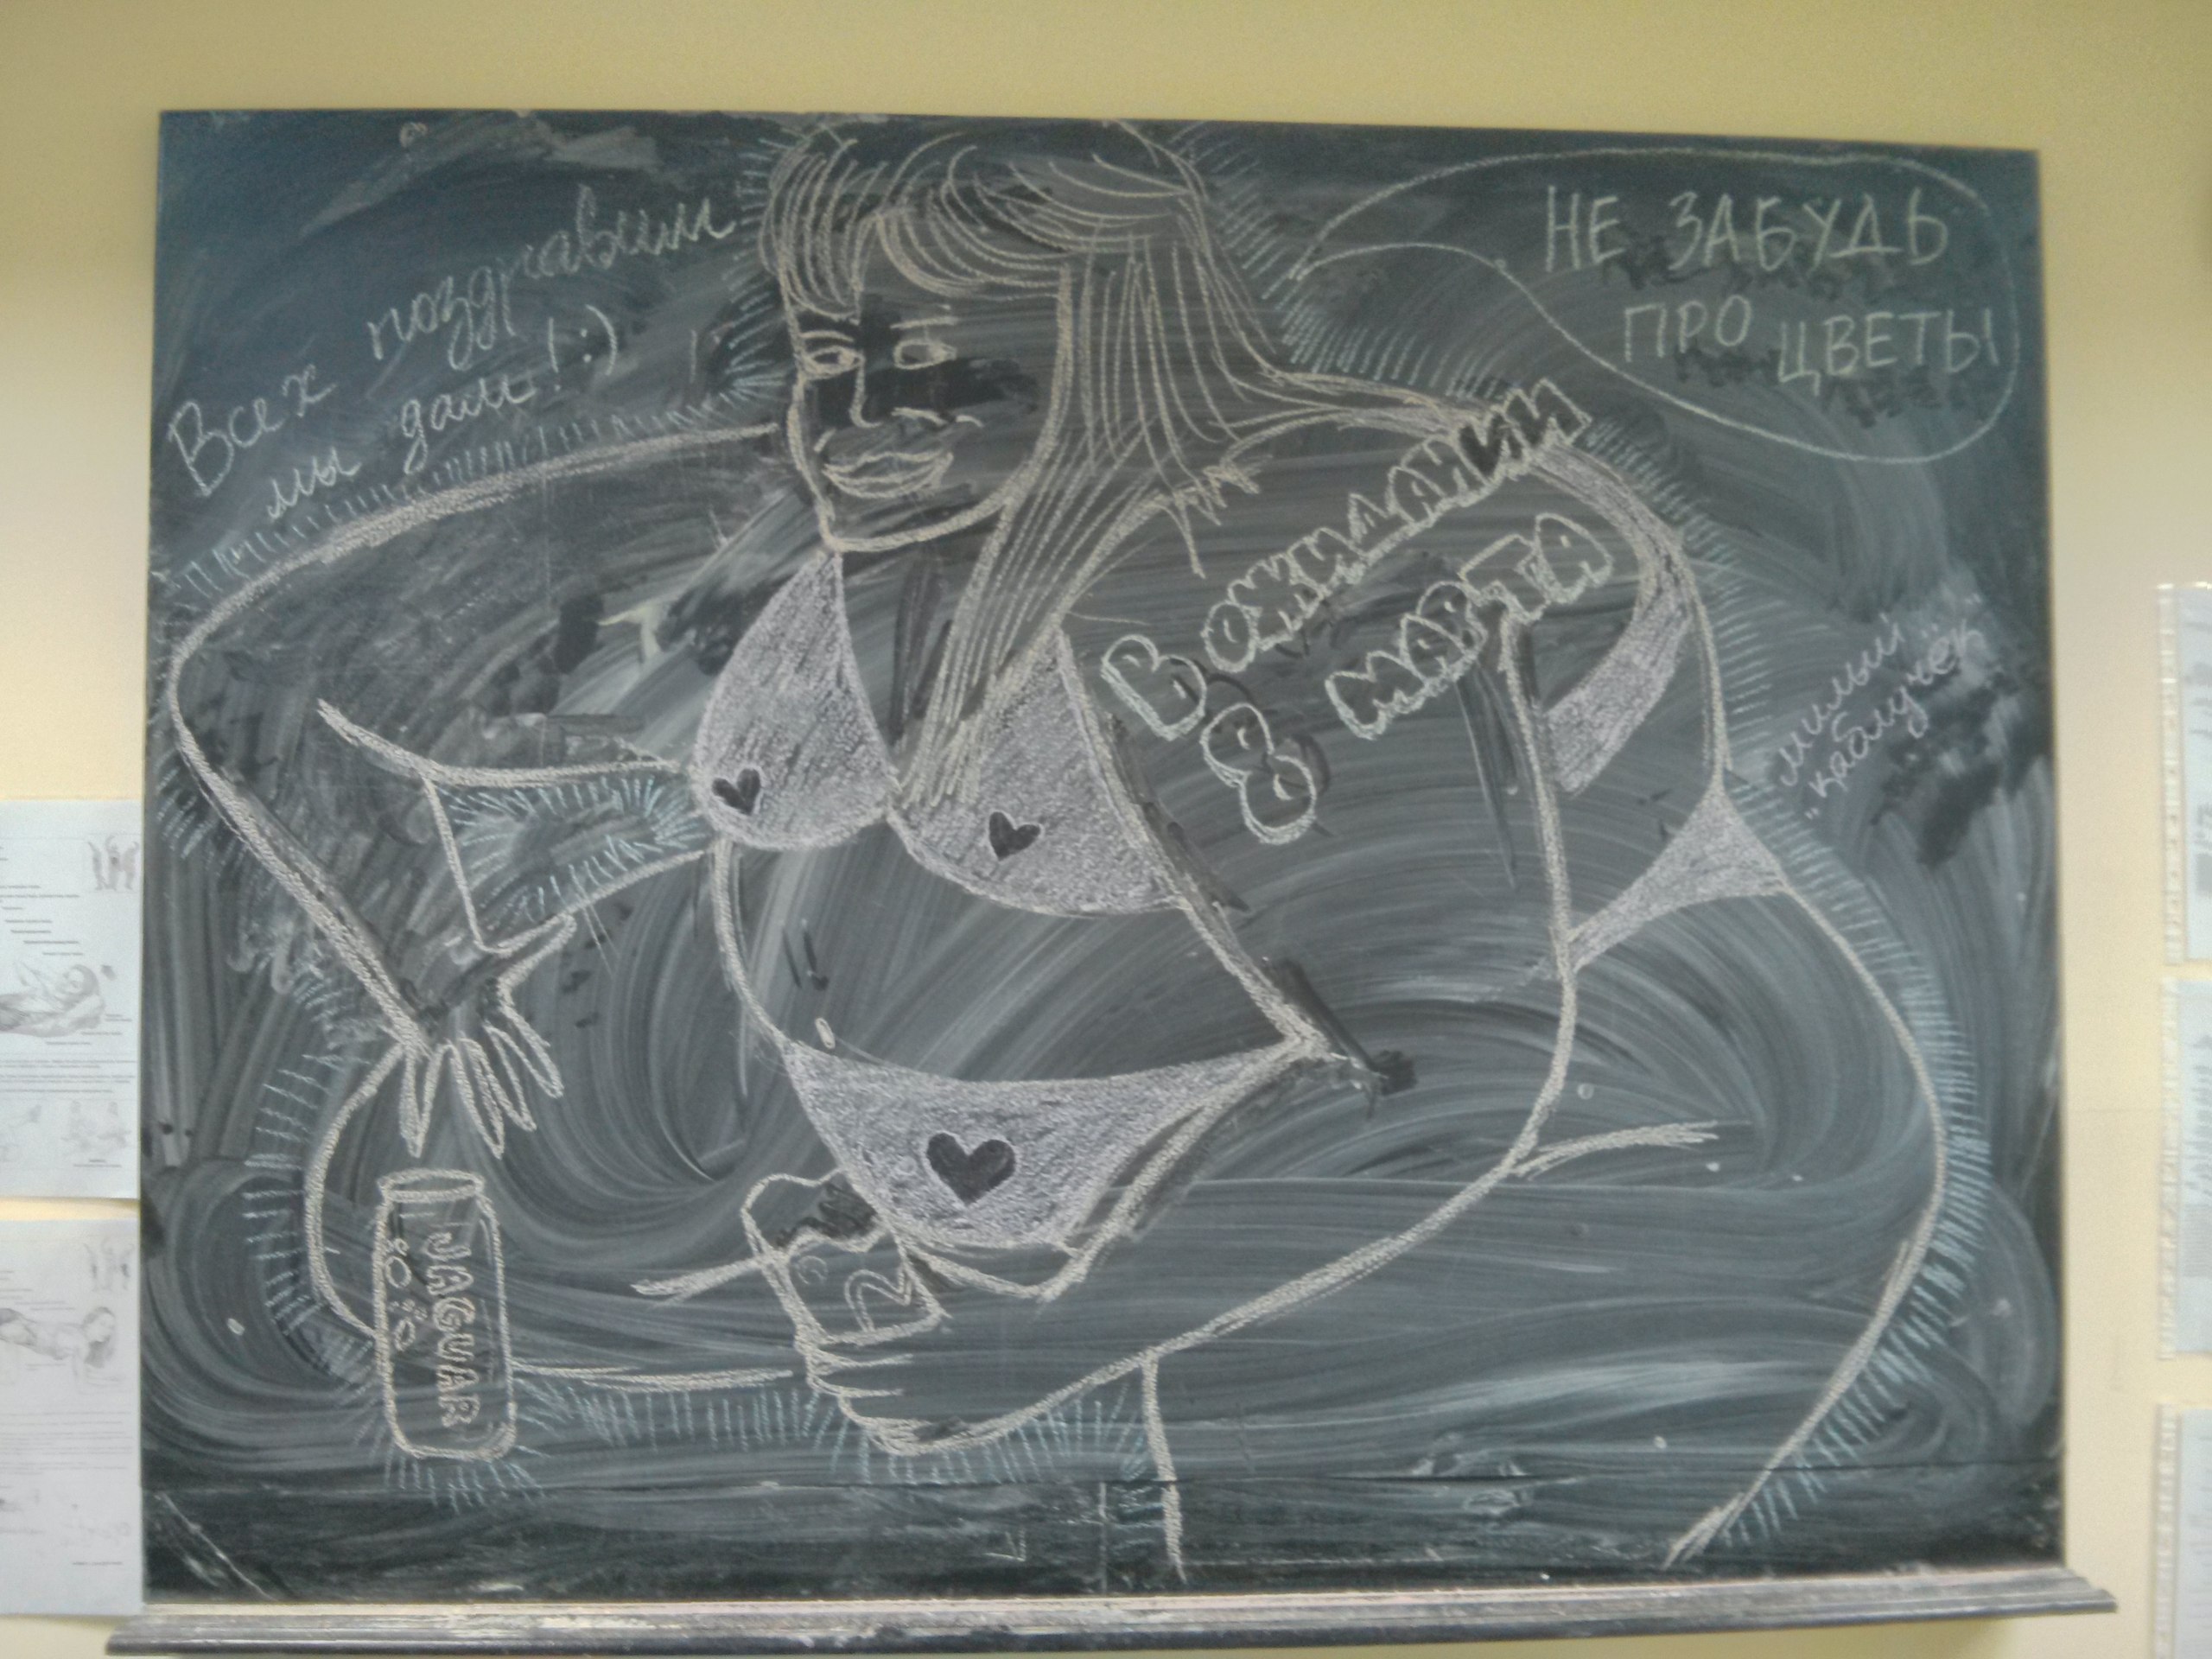 Всех поздравим
мы дам! :)
НЕ ЗАБУДЬ
ПРО ЦВЕТЫ
В ОЖИДАНИИ
8 МАРТА
милый
"каблучёк
JAGUAR